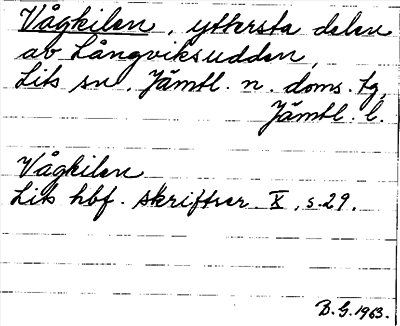 Vågkilen, yttersta delen
av Långviksudden,
Lits sn. Jämtl. n. doms. tg,
Jämtl. l.
Vågkilen
Lits hbf. skrifter X, s. 29.
B.G. 1963.